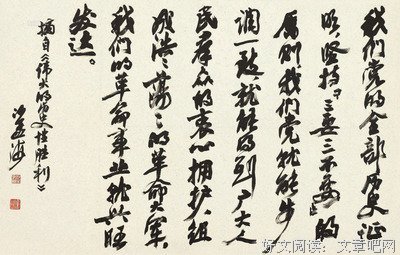 我们党的全部历史证
明,坚持“三要三不要”的
原则我们党就能步
调一致,就能得到广大人
民群众的衷心拥护,组
成浩〻荡〻的革命大军,
我们的革命事业就兴旺
发达。
摘自《伟大的历史性胜利》
沙孟海
好文阅读:文章吧网